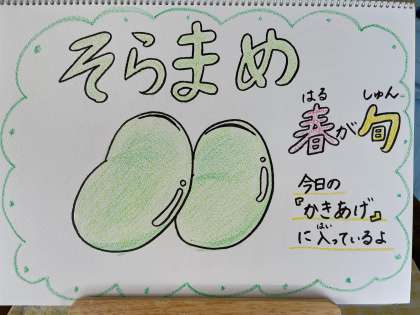 そらまめ
はる しゅん
春が旬
今日の
『かきあげ』
はい
に入っているよ